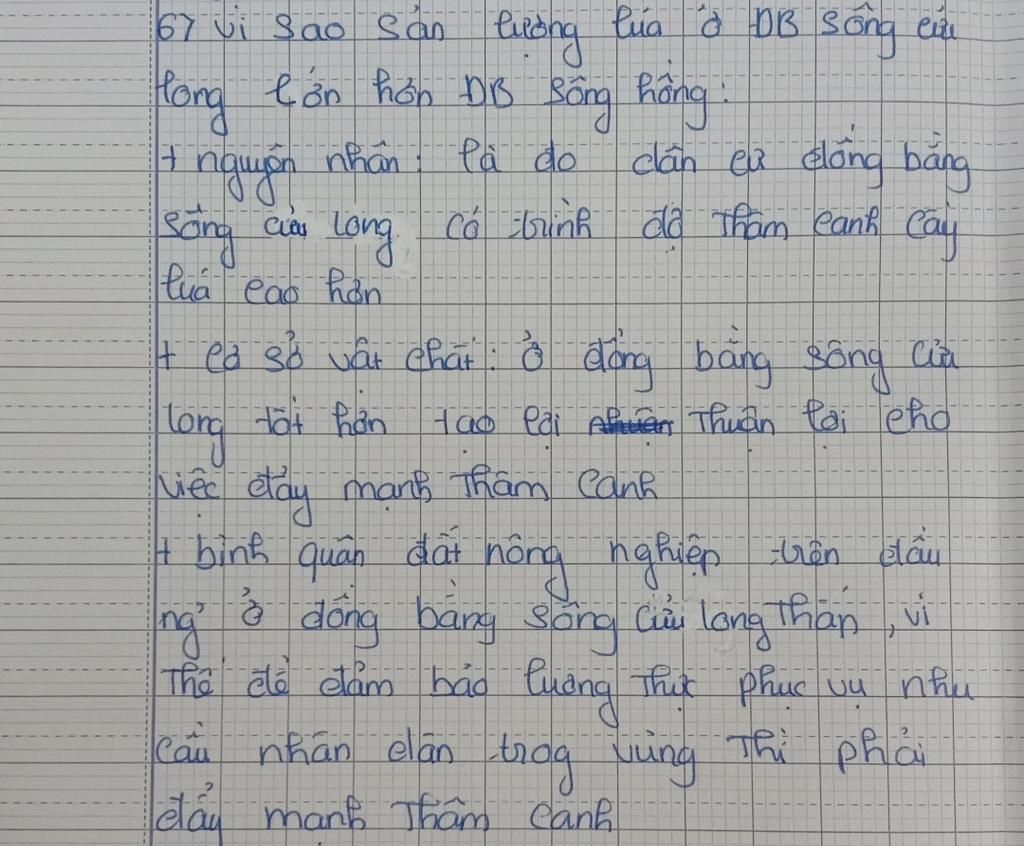 67 vì sao sản lượng lúa ở ĐB sông cửu
long lớn hơn ĐB sông hồng:
+ nguyên nhân: là do dân cư đồng bằng
sông cửu long có trình độ thâm canh cây
lúa cao hơn
+ cơ sở vật chất: ở đồng bằng sông cửu
long tốt hơn tạo lợi thuận lợi cho
việc đẩy mạnh thâm canh
+ bình quân đất nông nghiệp trên đầu
ng' ở đồng bằng sông cửu long thấp, vì
thế để đảm bảo lương thực phục vụ nhu
cầu nhân dân trog vùng thì phải
đẩy mạnh thâm canh